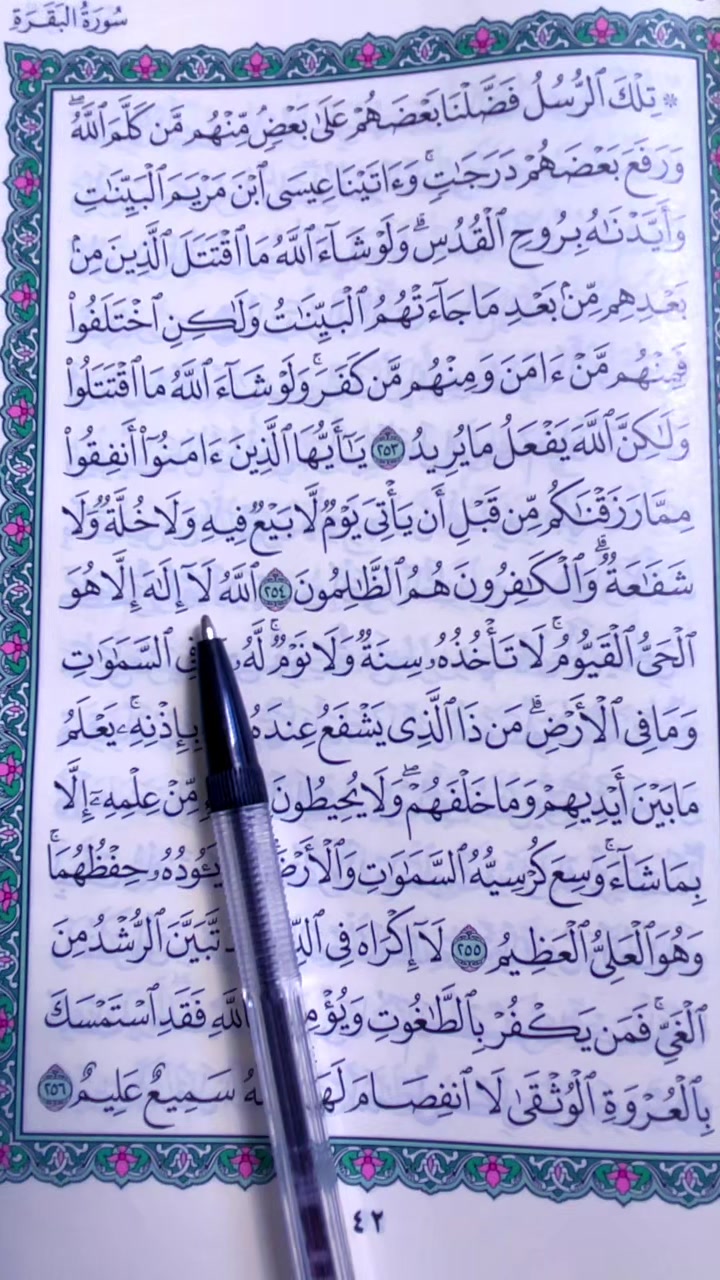 سُورَةُ البَقَرَةِ
* تِلْكَ ٱلرُّسُلُ فَضَّلْنَا بَعْضَهُمْ عَلَىٰ بَعْضٍۘ مِّنْهُم مَّن كَلَّمَ ٱللَّهُۖ
وَرَفَعَ بَعْضَهُمْ دَرَجَٰتٍۚ وَءَاتَيْنَا عِيسَى ٱبْنَ مَرْيَمَ ٱلْبَيِّنَٰتِ
وَأَيَّدْنَٰهُ بِرُوحِ ٱلْقُدُسِۗ وَلَوْ شَآءَ ٱللَّهُ مَا ٱقْتَتَلَ ٱلَّذِينَ مِنۢ
بَعْدِهِم مِّنۢ بَعْدِ مَا جَآءَتْهُمُ ٱلْبَيِّنَٰتُ وَلَٰكِنِ ٱخْتَلَفُوا۟
فَمِنْهُم مَّنْ ءَامَنَ وَمِنْهُم مَّن كَفَرَۚ وَلَوْ شَآءَ ٱللَّهُ مَا ٱقْتَتَلُوا۟
وَلَٰكِنَّ ٱللَّهَ يَفْعَلُ مَا يُرِيدُ ٢٥٣ يَٰٓأَيُّهَا ٱلَّذِينَ ءَامَنُوٓا۟ أَنفِقُوا۟
مِمَّا رَزَقْنَٰكُم مِّن قَبْلِ أَن يَأْتِىَ يَوْمٌ لَّا بَيْعٌ فِيهِ وَلَا خُلَّةٌ وَلَا
شَفَٰعَةٌۗ وَٱلْكَٰفِرُونَ هُمُ ٱلظَّٰلِمُونَ ٢٥٤ ٱللَّهُ لَآ إِلَٰهَ إِلَّا هُوَ
ٱلْحَىُّ ٱلْقَيُّومُۚ لَا تَأْخُذُهُۥ سِنَةٌ وَلَا نَوْمٌۚ لَّهُۥ فِى ٱلسَّمَٰوَٰتِ
وَمَا فِى ٱلْأَرْضِۗ مَن ذَا ٱلَّذِى يَشْفَعُ عِندَهُ بِإِذْنِهِۦۚ يَعْلَمُ
مَا بَيْنَ أَيْدِيهِمْ وَمَا خَلْفَهُمْۖ وَلَا يُحِيطُونَ مِّنْ عِلْمِهِۦٓ إِلَّا
بِمَا شَآءَۚ وَسِعَ كُرْسِيُّهُ ٱلسَّمَٰوَٰتِ وَٱلْأَرْضَ يَـُٔودُهُۥ حِفْظُهُمَاۚ
وَهُوَ ٱلْعَلِىُّ ٱلْعَظِيمُ ٢٥٥ لَآ إِكْرَاهَ فِى تَّبَيَّنَ ٱلرُّشْدُ مِنَ
ٱلْغَىِّۚ فَمَن يَكْفُرْ بِٱلطَّٰغُوتِ ٱللَّهِ فَقَدِ ٱسْتَمْسَكَ
بِٱلْعُرْوَةِ ٱلْوُثْقَىٰ لَا ٱنفِصَامَ سَمِيعٌ عَلِيمٌ ٢٥٦
٤٢